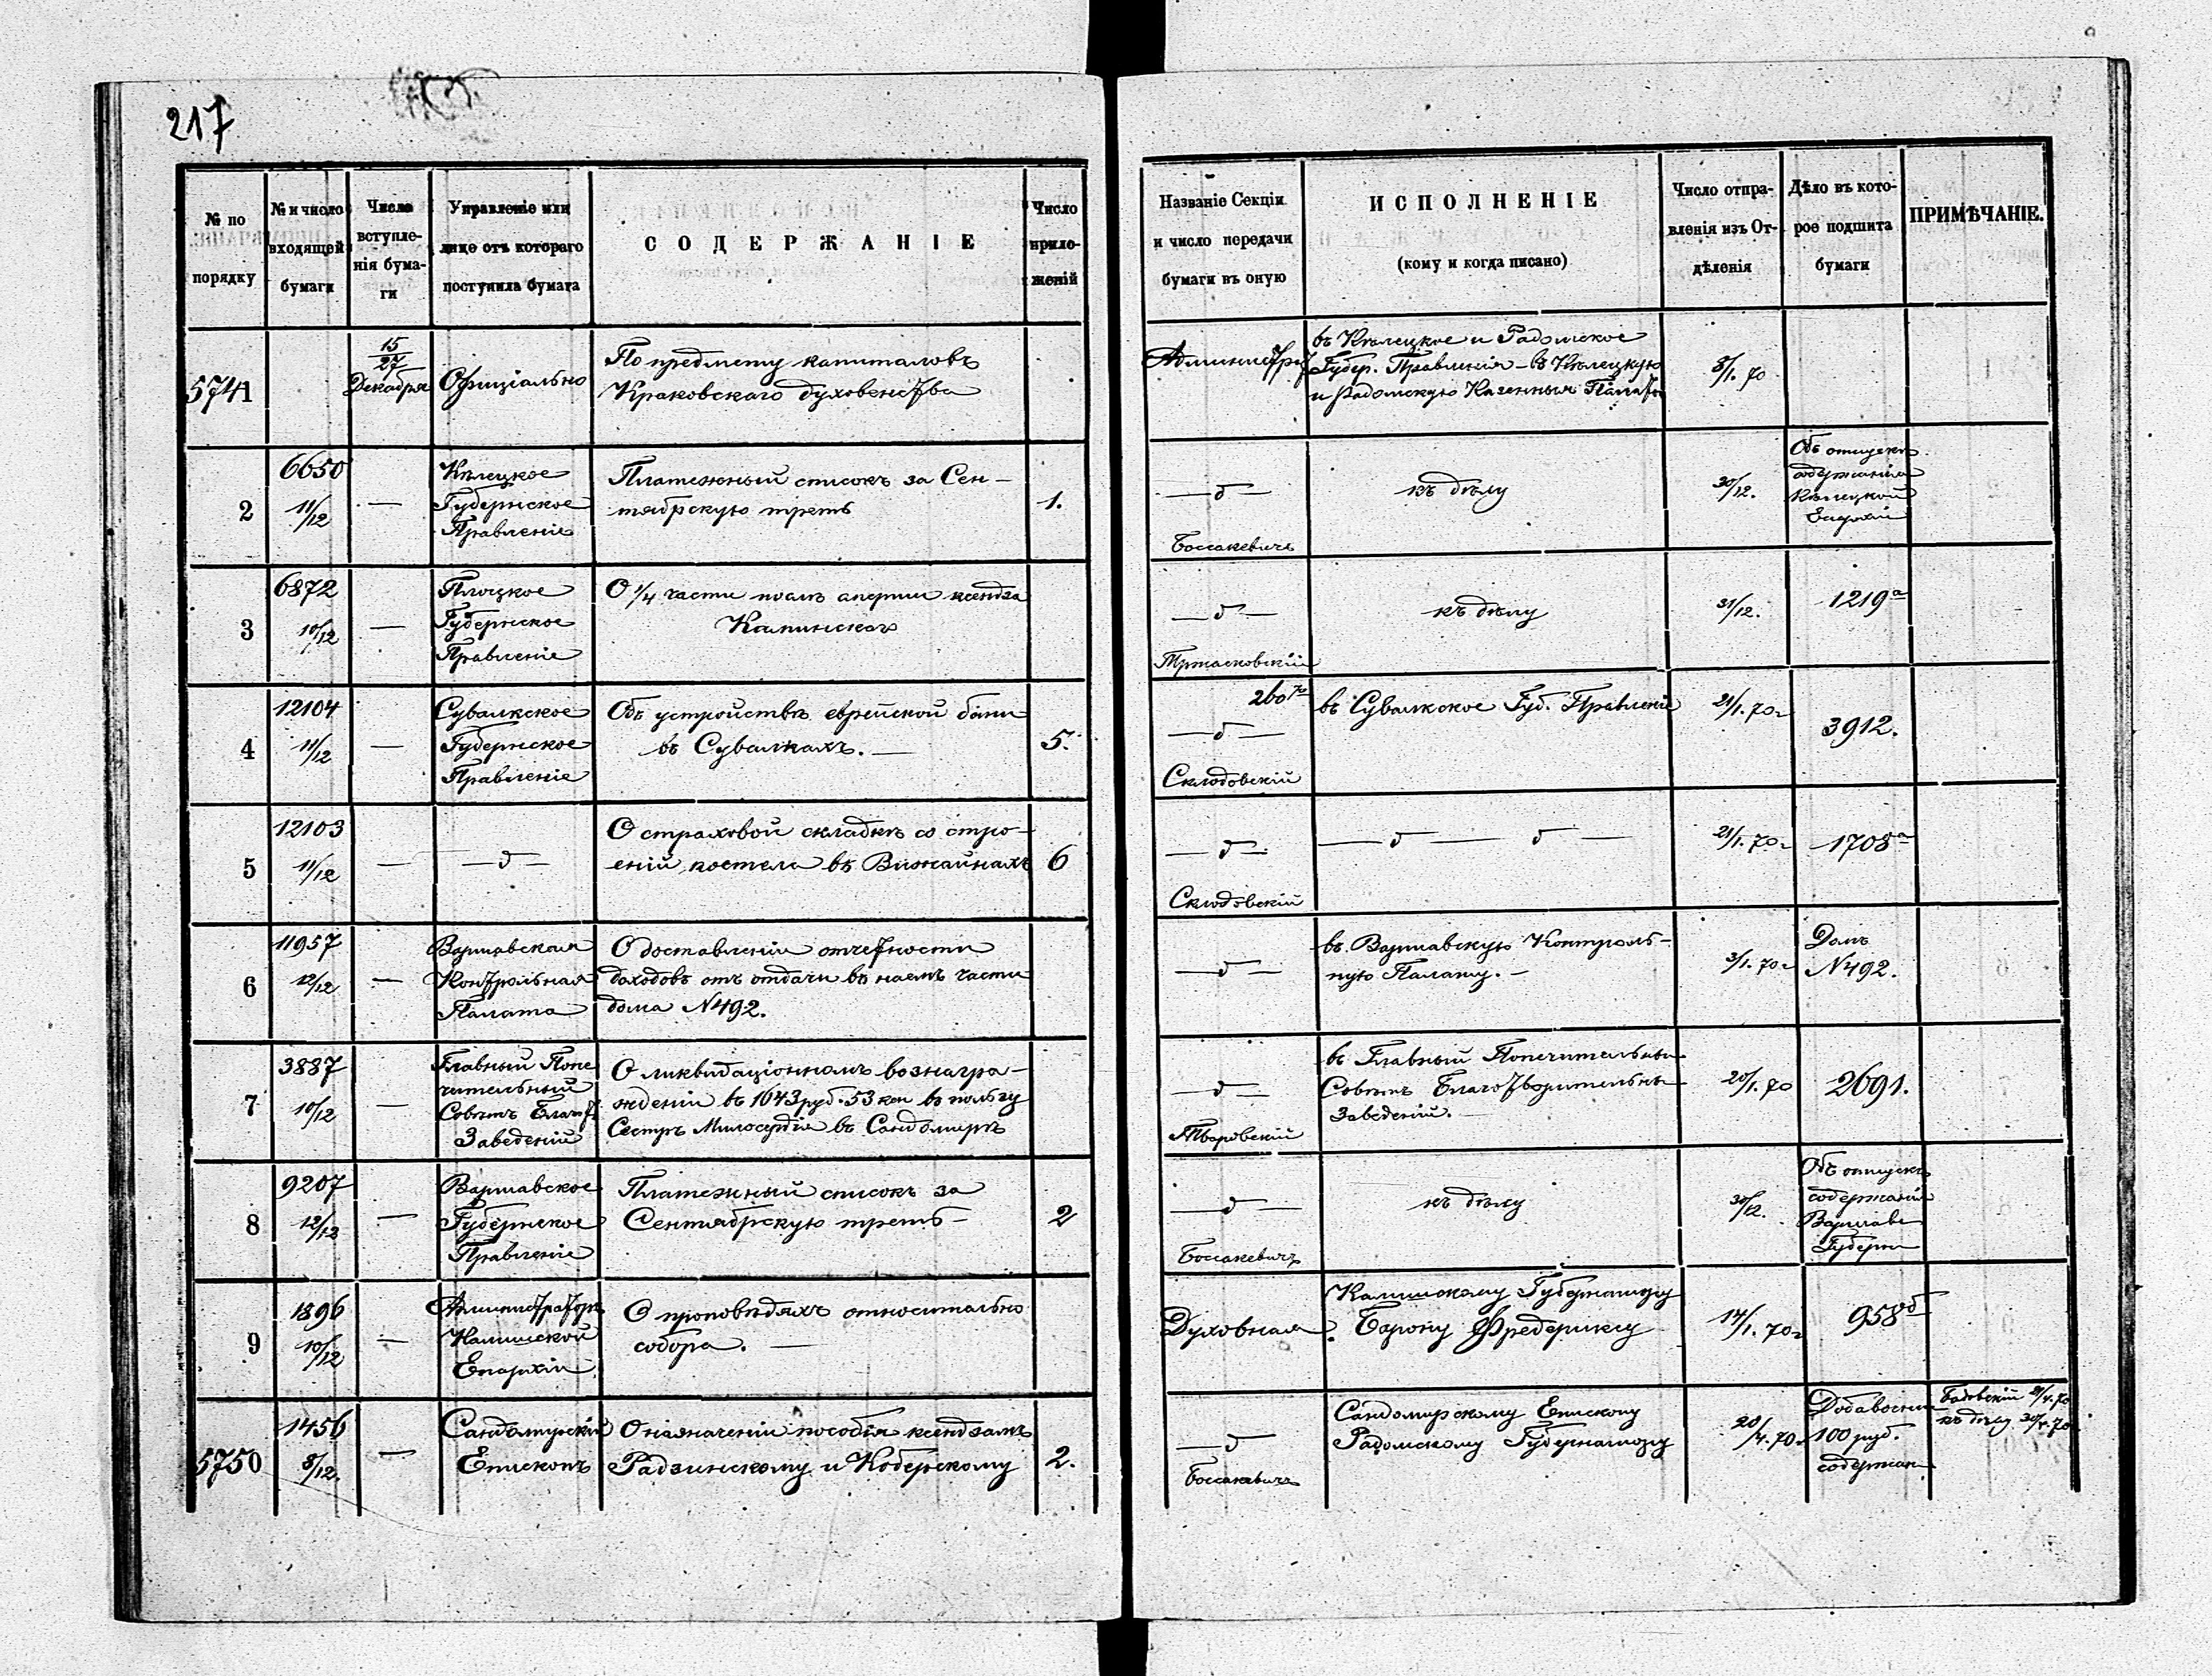 217
№ по порядку
№ и число входящей бумаги
Число вступле-
нія бума-
ги
Управленіе или
лице отъ котораго
поступила бумага
СОДЕРЖАНІЕ
Число
прило-
женій
Названіе Секціи
и число передачи
бумаги въ оную
ИСПОЛНЕНІЕ
(кому и когда писано)
Число отпра-
вленія изъ От-
дѣленія
Дѣло въ кото-
рое подшита
бумаги
ПРИМѢЧАНІЕ.
5741
15/27
Декабря
Офиціально
По предмету капиталовъ
Краковскаго духовенства
въ Кѣлецкое и Радомское
Губер. Правленія – въ Кѣлецкую
и Радомскую Казенныя
8/1. 70
2
6650
11/12
—
Кѣлецкое
Губернское
Правленіе
Платежный списокъ за Сен-
тябрскую треть
1.
— д —
Боссакевичъ
къ дѣлу
30/12.
Объ отпускѣ
содержанія
Кѣлецкой
Епархіи
3
6872
10/12
—
Плоцкое
Губернское
Правленіе
О 1/4 части ксендза
— д —
къ дѣлу
31/12.
1219а
4
12104
11/12
—
Сувалкское
Губернское
Правленіе
Объ устройствѣ еврейской бани
въ Сувалкахъ. —
5.
— д —
Склодовскій
въ Сувалкское Губ. Правленіе
21/1. 70г
3912.
5
12103
11/12
—
— д —
О страховой складкѣ со стро-
еній костела въ Вижайнахъ
6
— д —
Склодовскій
— д — д —
21/1. 70г
1708а
6
11957
12/12
—
Варшавская
Контрольная
Палата
О доставленіи отчетности
доходовъ отъ отдачи въ наемъ части
дома N492.
— д —
въ Варшавскую Контроль-
ную Палату. —
3/1. 70г
Домъ
N492.
7
3887
10/12
—
Главный Попе
чительный
Совѣтъ Благот.
Заведеній
О ликвидаціонномъ вознагра-
жденіи въ 1643 руб. 53 коп въ пользу
Сестръ Милосердія въ Сандомирѣ
— д —
Тваровскій
въ Главный Попечительный
Совѣтъ Благотворительн
Заведеній. —
20/1. 70
2691.
8
9207
12/12
—
Варшавское
Губернское
Правленіе
Платежный списокъ за
Сентябрскую треть –
2
— д —
Боссакевичъ
къ дѣлу
30/12.
Объ отпускѣ
содержанія
Варшавс
Губерн
9
1896
10/12
—
Администраторъ
Калишской
Епархіи
О проповѣдяхъ относительно
собора. —
Духовная
Калишскому Губернатору
Барону Фредериксу
14/1. 70г
958б
5750
1456
8/12.
—
Сандомирскій
Епископъ
О назначеніи пособія ксендзамъ
Радзинскому и Коберскому
2.
— д
Боссакевичъ
Сандомирскому Епископу
Радомскому Губернатору
20/4. 70г
100 руб.
содержан
къ дѣлу 30/4. 70